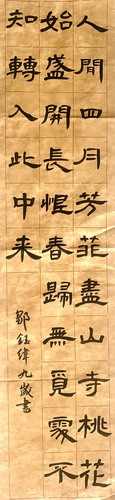 人閒四月芳菲盡山寺桃花
始盛開長恨春歸無覓處不
知轉入此中来
鄒鈺緯九歲書